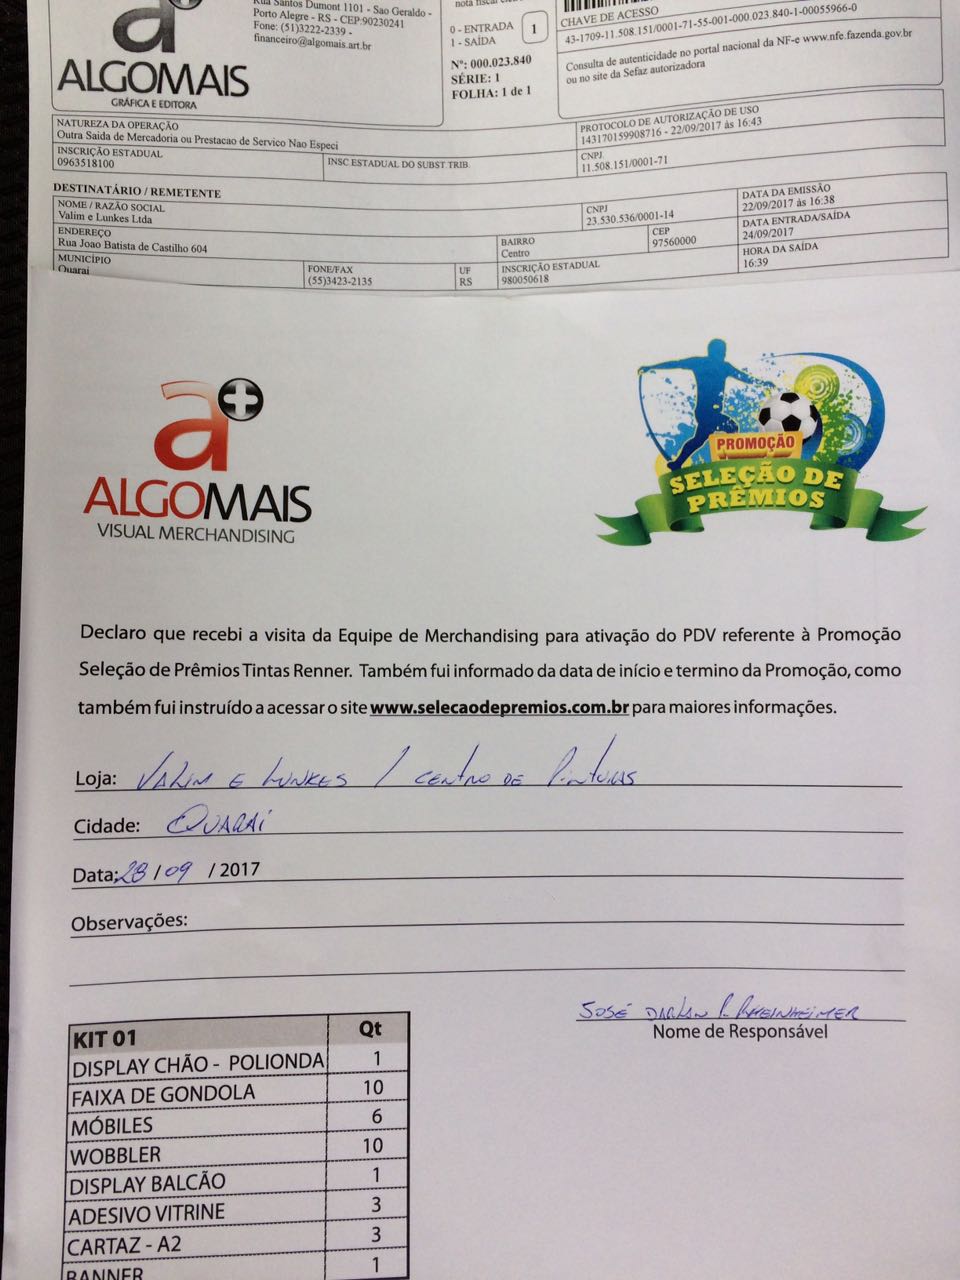 a+
Rua Santos Dumont 1101 - Sao Geraldo -
Porto Alegre - RS - CEP:90230241
Fone: (51)3222-2339 -
financeiro@algomais.art.br
ALGOMAIS
GRÁFICA E EDITORA
nota fiscal
0 - ENTRADA
1 - SAÍDA
1
Nº: 000.023.840
SÉRIE: 1
FOLHA: 1 de 1
CHAVE DE ACESSO
43-1709-11.508.151/0001-71-55-001-000.023.840-1-00055966-0
Consulta de autenticidade no portal nacional da NF-e www.nfe.fazenda.gov.br
ou no site da Sefaz autorizadora
NATUREZA DA OPERAÇÃO
Outra Saida de Mercadoria ou Prestacao de Servico Nao Especi
PROTOCOLO DE AUTORIZAÇÃO DE USO
143170159908716 - 22/09/2017 às 16:43
INSCRIÇÃO ESTADUAL
0963518100
INSC ESTADUAL DO SUBST TRIB.
CNPJ
11.508.151/0001-71
DESTINATÁRIO / REMETENTE
NOME / RAZÃO SOCIAL
Valim e Lunkes Ltda
CNPJ
23.530.536/0001-14
DATA DA EMISSÃO
22/09/2017 às 16:38
ENDEREÇO
Rua Joao Batista de Castilho 604
BAIRRO
Centro
CEP
97560000
DATA ENTRADA/SAÍDA
24/09/2017
MUNICÍPIO
Quarai
FONE/FAX
(55)3423-2135
UF
RS
INSCRIÇÃO ESTADUAL
980050618
HORA DA SAÍDA
16:39
a+
ALGOMAIS
VISUAL MERCHANDISING
PROMOÇÃO
SELEÇÃO DE
PRÊMIOS
Declaro que recebi a visita da Equipe de Merchandising para ativação do PDV referente à Promoção
Seleção de Prêmios Tintas Renner. Também fui informado da data de início e termino da Promoção, como
também fui instruído a acessar o site www.selecaodepremios.com.br para maiores informações.
Loja: VALIM E LUNKES / CENTRO DE PINTURAS
Cidade: QUARAÍ
Data: 28 / 09 / 2017
Observações:
JOSÉ DARLAN R. RHEINHEIMER
Nome de Responsável
KIT 01 Qt
DISPLAY CHÃO - POLIONDA 1
FAIXA DE GONDOLA 10
MÓBILES 6
WOBBLER 10
DISPLAY BALCÃO 1
ADESIVO VITRINE 3
CARTAZ - A2 3
BANNER 1